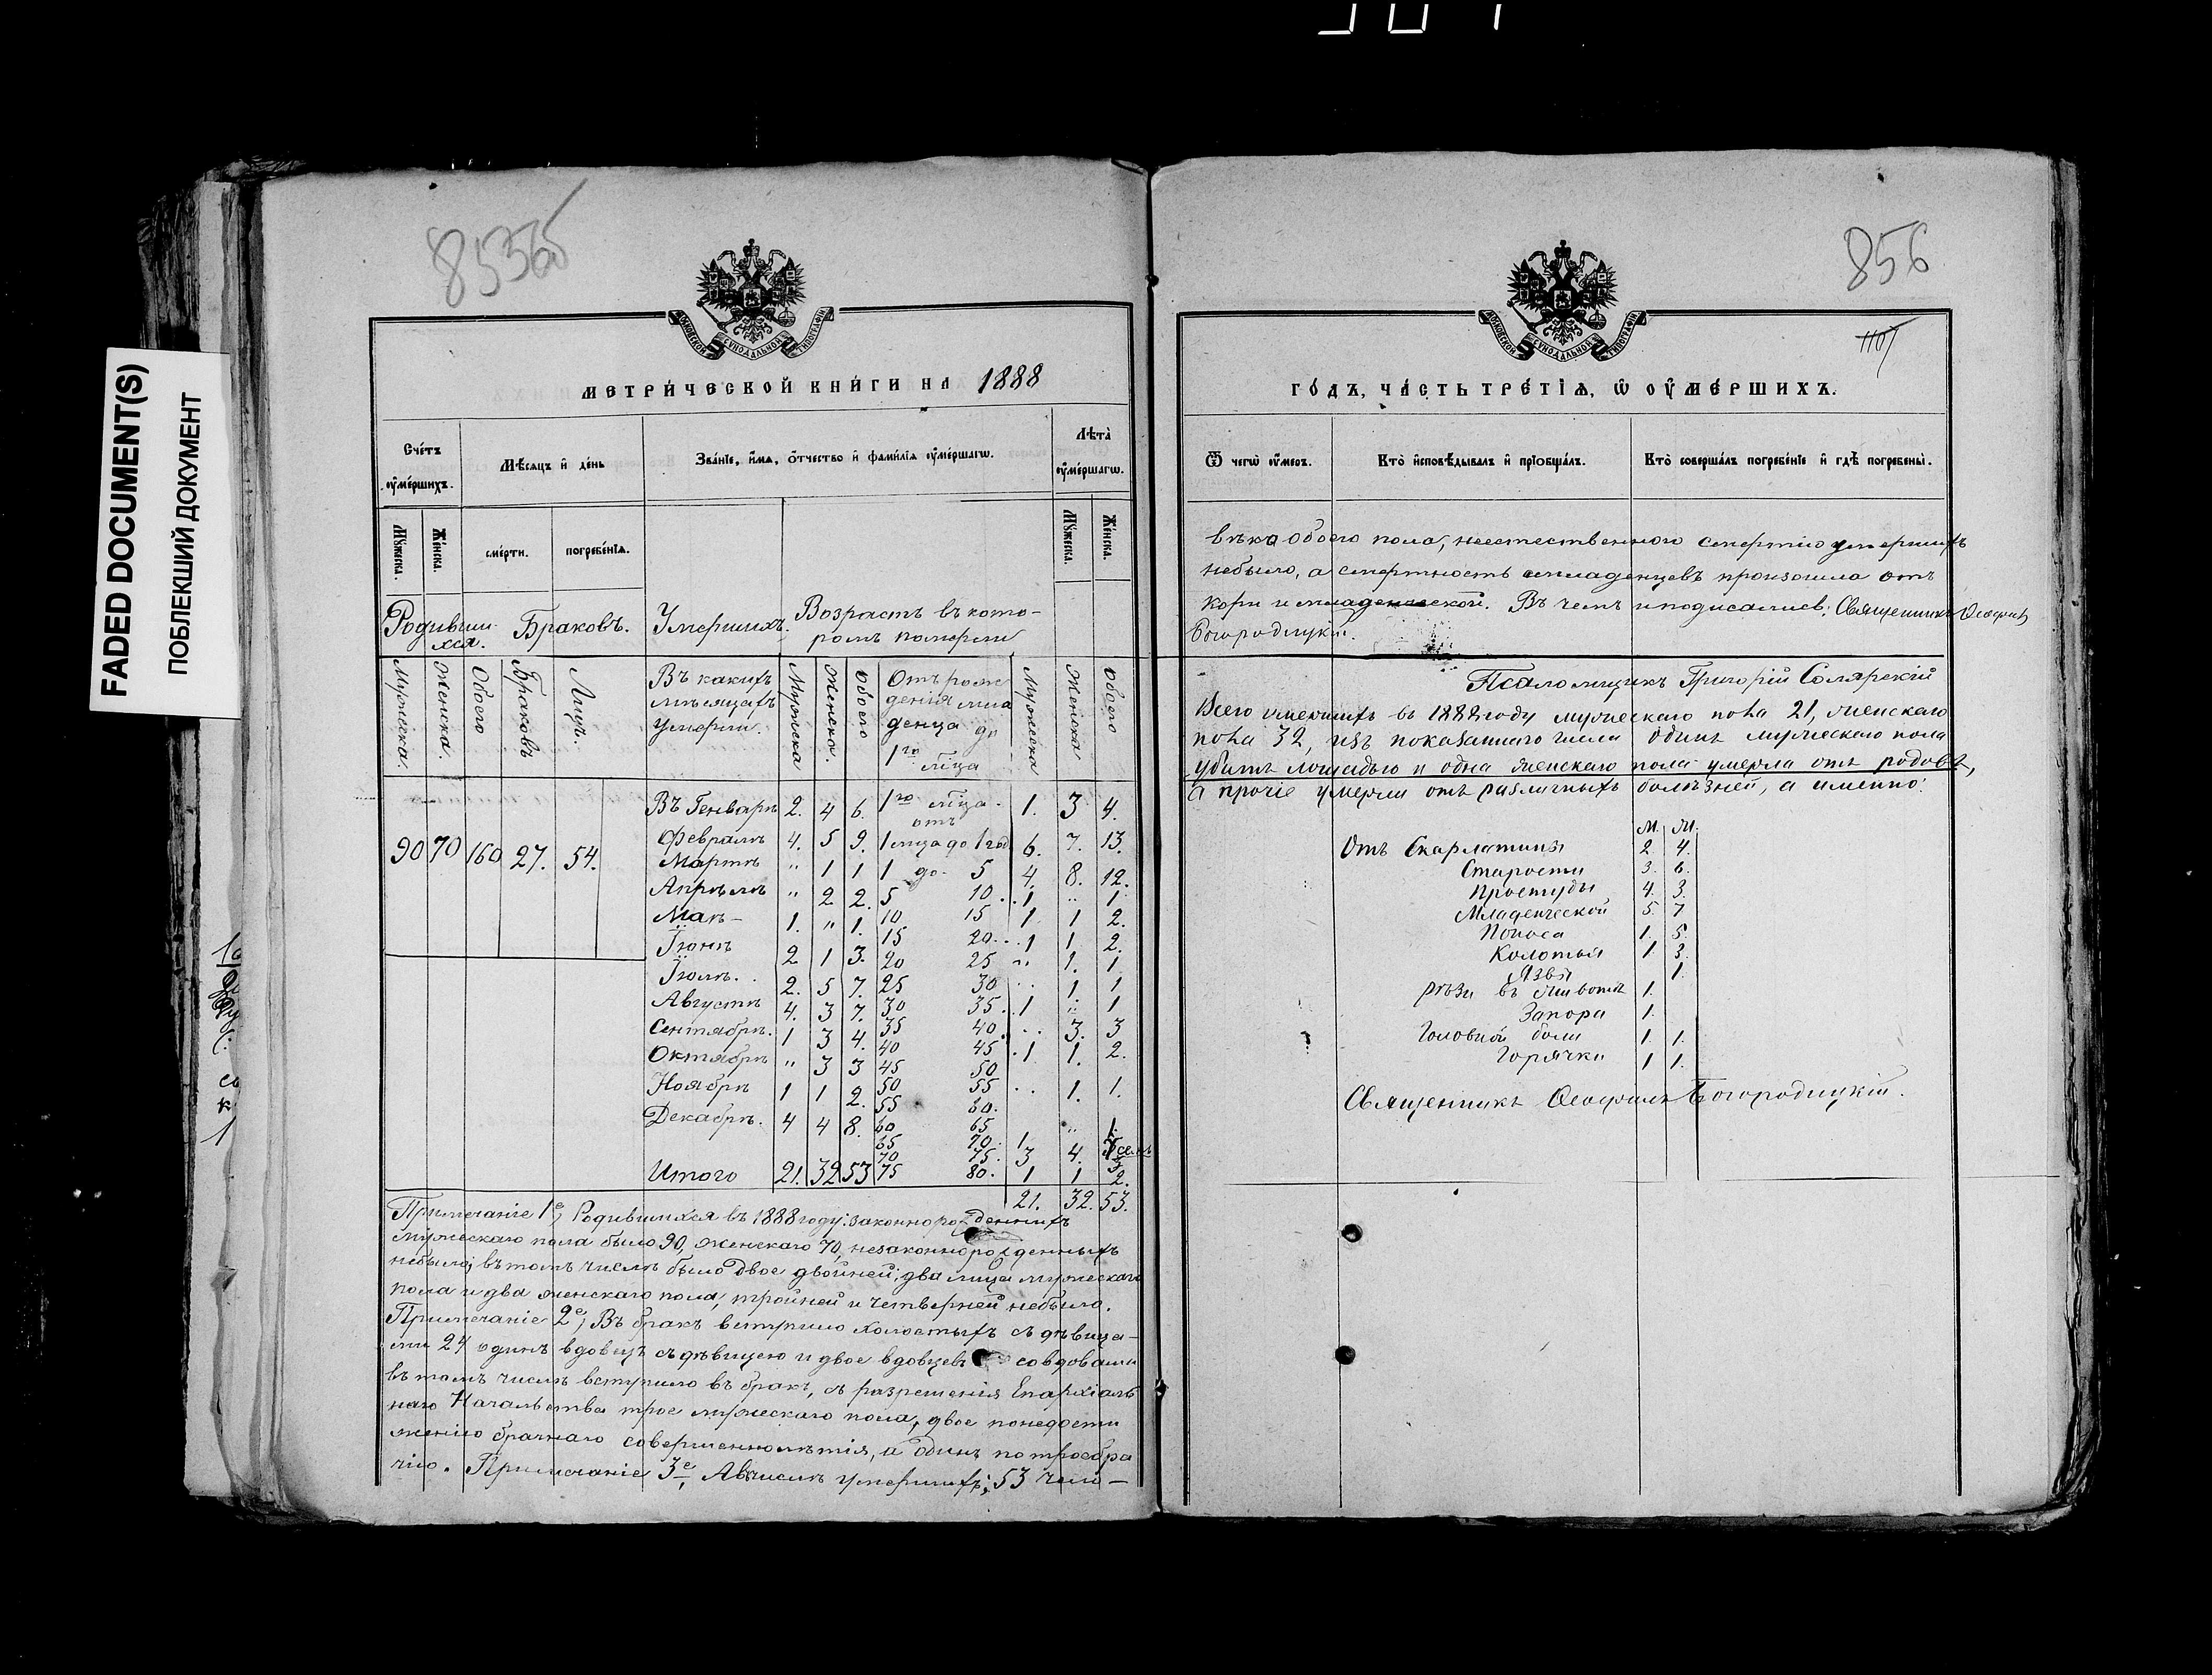 FADED DOCUMENT(S)
ПОБЛЕКШИЙ ДОКУМЕНТ
856
МОСКОВСКОЙ СѴНОДАЛЬНОЙ ТИПОГРАФІИ
МЕТРИ́ЧЕСКОЙ КНИ́ГИ НА 1888
Сче́тъ ᲂу҆ме́ршихъ.
Мѣ́сяцъ и҆ де́нь
Зва́нїе, и҆́мя, ѻ҆́тчество и҆ фами́лїя ᲂу҆ме́ршагѡ.
Лѣ́та ᲂу҆ме́ршагѡ.
Мꙋ́жеска. Же́нска. сме́рти. погребе́нїя. Мꙋ́жеска. Же́нска.
Родивши- Браковъ. Умершихъ. Возрастъ въ кото-
хся. ромъ померли
Мужеска. Женска. Обоего Браковъ Лицъ. Въ какихъ мѣсяцахъ Умерли. Мужеска Женска. Обоего Отъ рожденія младенца до 1го мѣсца Мужеска Женска Обоего
90 70 160 27. 54.
Въ Генварѣ 2. 4 6. 1го мѣсца. 1. 3 4.
отъ
Февралѣ 4. 5 9. 1 мѣсца до 1 год. 6. 7. 13.
Мартѣ " 1 1 1 до 5 4. 8. 12.
Апрѣлѣ " 2 2. 5 10. 1 " 1
Маѣ 1. " 1. 10 15 1 1 2.
15 20. 1 1. 2.
Іюнѣ 2 1 3. 20 25 " 1. 1
Іюлѣ. 2. 5 7. 25 30 1 1
Августѣ 4. 3 7. 30 35. 1 " 1
Сентябрѣ. 1 3 4. 35 40. 3. 3
Октябрѣ " 3 3 40 45. 1 1. 2.
45 50
Ноябрѣ 1 1 2. 50 55 1. 1.
55 60.
Декабрѣ. 4 4 8. 60 65
65 70.
70 75. 3 4.
Итого 21. 32 53 75 80. 1 1 2.
21. 32. 53.
Примечаніе 1е, Родившихся въ 1888 году: законнорожденныхъ
мужескаго пола было 90, женскаго 70, незаконнорожденныхъ
небыло; въ томъ числѣ было двое двойней: два лица мужескаго
пола и два женскаго пола, тройней и четверней небыло.
Примечаніе 2е, Въ бракъ вступило холостыхъ съ дѣвица-
ми 24 одинъ вдовецъ съ дѣвицею и двое вдовцевъ со вдовами
въ томъ числѣ вступило въ бракъ, съ разрешенія Епархіаль
наго Начальства трое мужескаго пола, двое по недости
женію брачнаго совершеннолѣтія, а одинъ по троебра
чію. Примечаніе 3е, Въ числѣ умершихъ; 53 чело-
856
1107
МОСКОВСКОЙ СѴНОДАЛЬНОЙ ТИПОГРАФІИ
ГО́ДЪ, ЧА́СТЬ ТРЕ́ТЇѦ, Ѡ҆ ОУ҆МЕ́РШИХЪ.
Ѿ чегѡ̀ ᲂу҆́меръ. Кто̀ и҆сповѣ́дывалъ и҆ прїобща́лъ. Кто̀ соверша́лъ погребе́нїе и҆ гдѣ̀ погребены̀.
вѣка обоего пола, неестественною смертію умершихъ
небыло, а смертность младенцевъ произошла отъ
кори и младенческой. Въ чемъ и подписались: Священникъ Ѳеофилъ
Богородицкій.
Псаломщикъ Григорій Солярскій
Всего умершихъ въ 1888 году мужескаго пола 21, женскаго
пола 32, изъ показаннаго числа одинъ мужескаго пола
убитъ лошадью и одна женскаго пола умерла отъ родовъ,
а прочіе умерли отъ различныхъ болѣзней, а именно:
М. Ж.
Отъ Скарлатины 2. 4.
Старости 3. 6.
Простуды 4. 3.
Младенческой 5. 7
Поноса 1. 5.
Колотья 1. 3.
Язвы 1.
Рѣзи въ животѣ 1.
Запора 1.
Головной боли 1. 1.
Горячки 1 1.
Священникъ Ѳеофилъ Богородицкій.